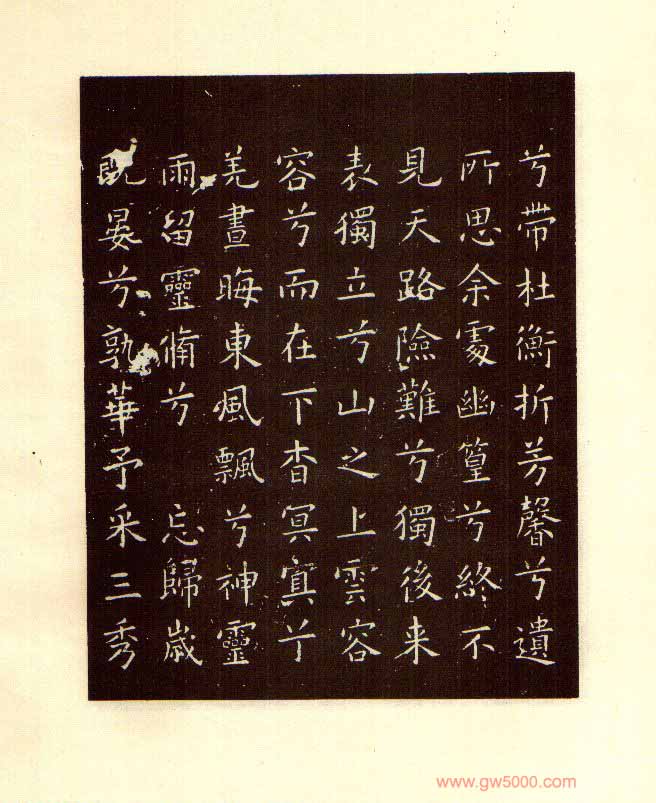 兮帶杜衡折芳馨兮遺
所思余處幽篁兮終不
見天路險難兮獨後来
表獨立兮山之上雲容
容兮而在下杳冥冥兮
羌晝晦東風飄兮神靈
雨留靈脩兮 忘歸歲
既晏兮孰華予采三秀
www.gw5000.com